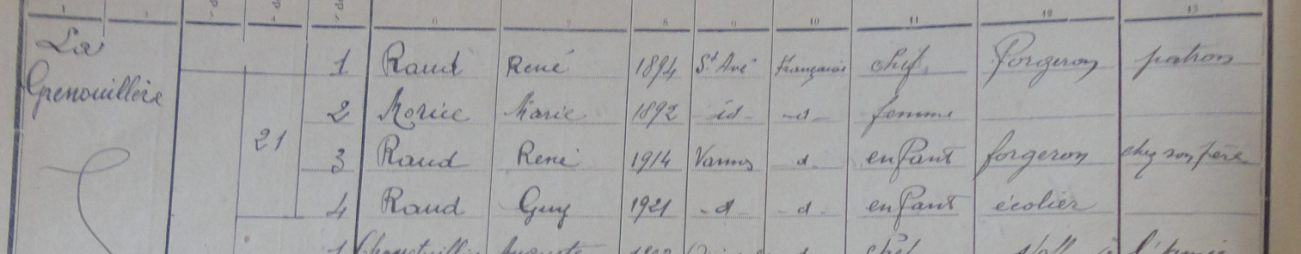 6 7 8 9 10 11 12 13
La Grenouillère
1 Raud René 1894 St Avé Française chef Forgeron patron
2 Morice Marie 1892 id -d- femme
21
3 Raud René 1914 Vannes d enfant forgeron chez son père
4 Raud Guy 1921 -d -d- enfant écolier
1 chef